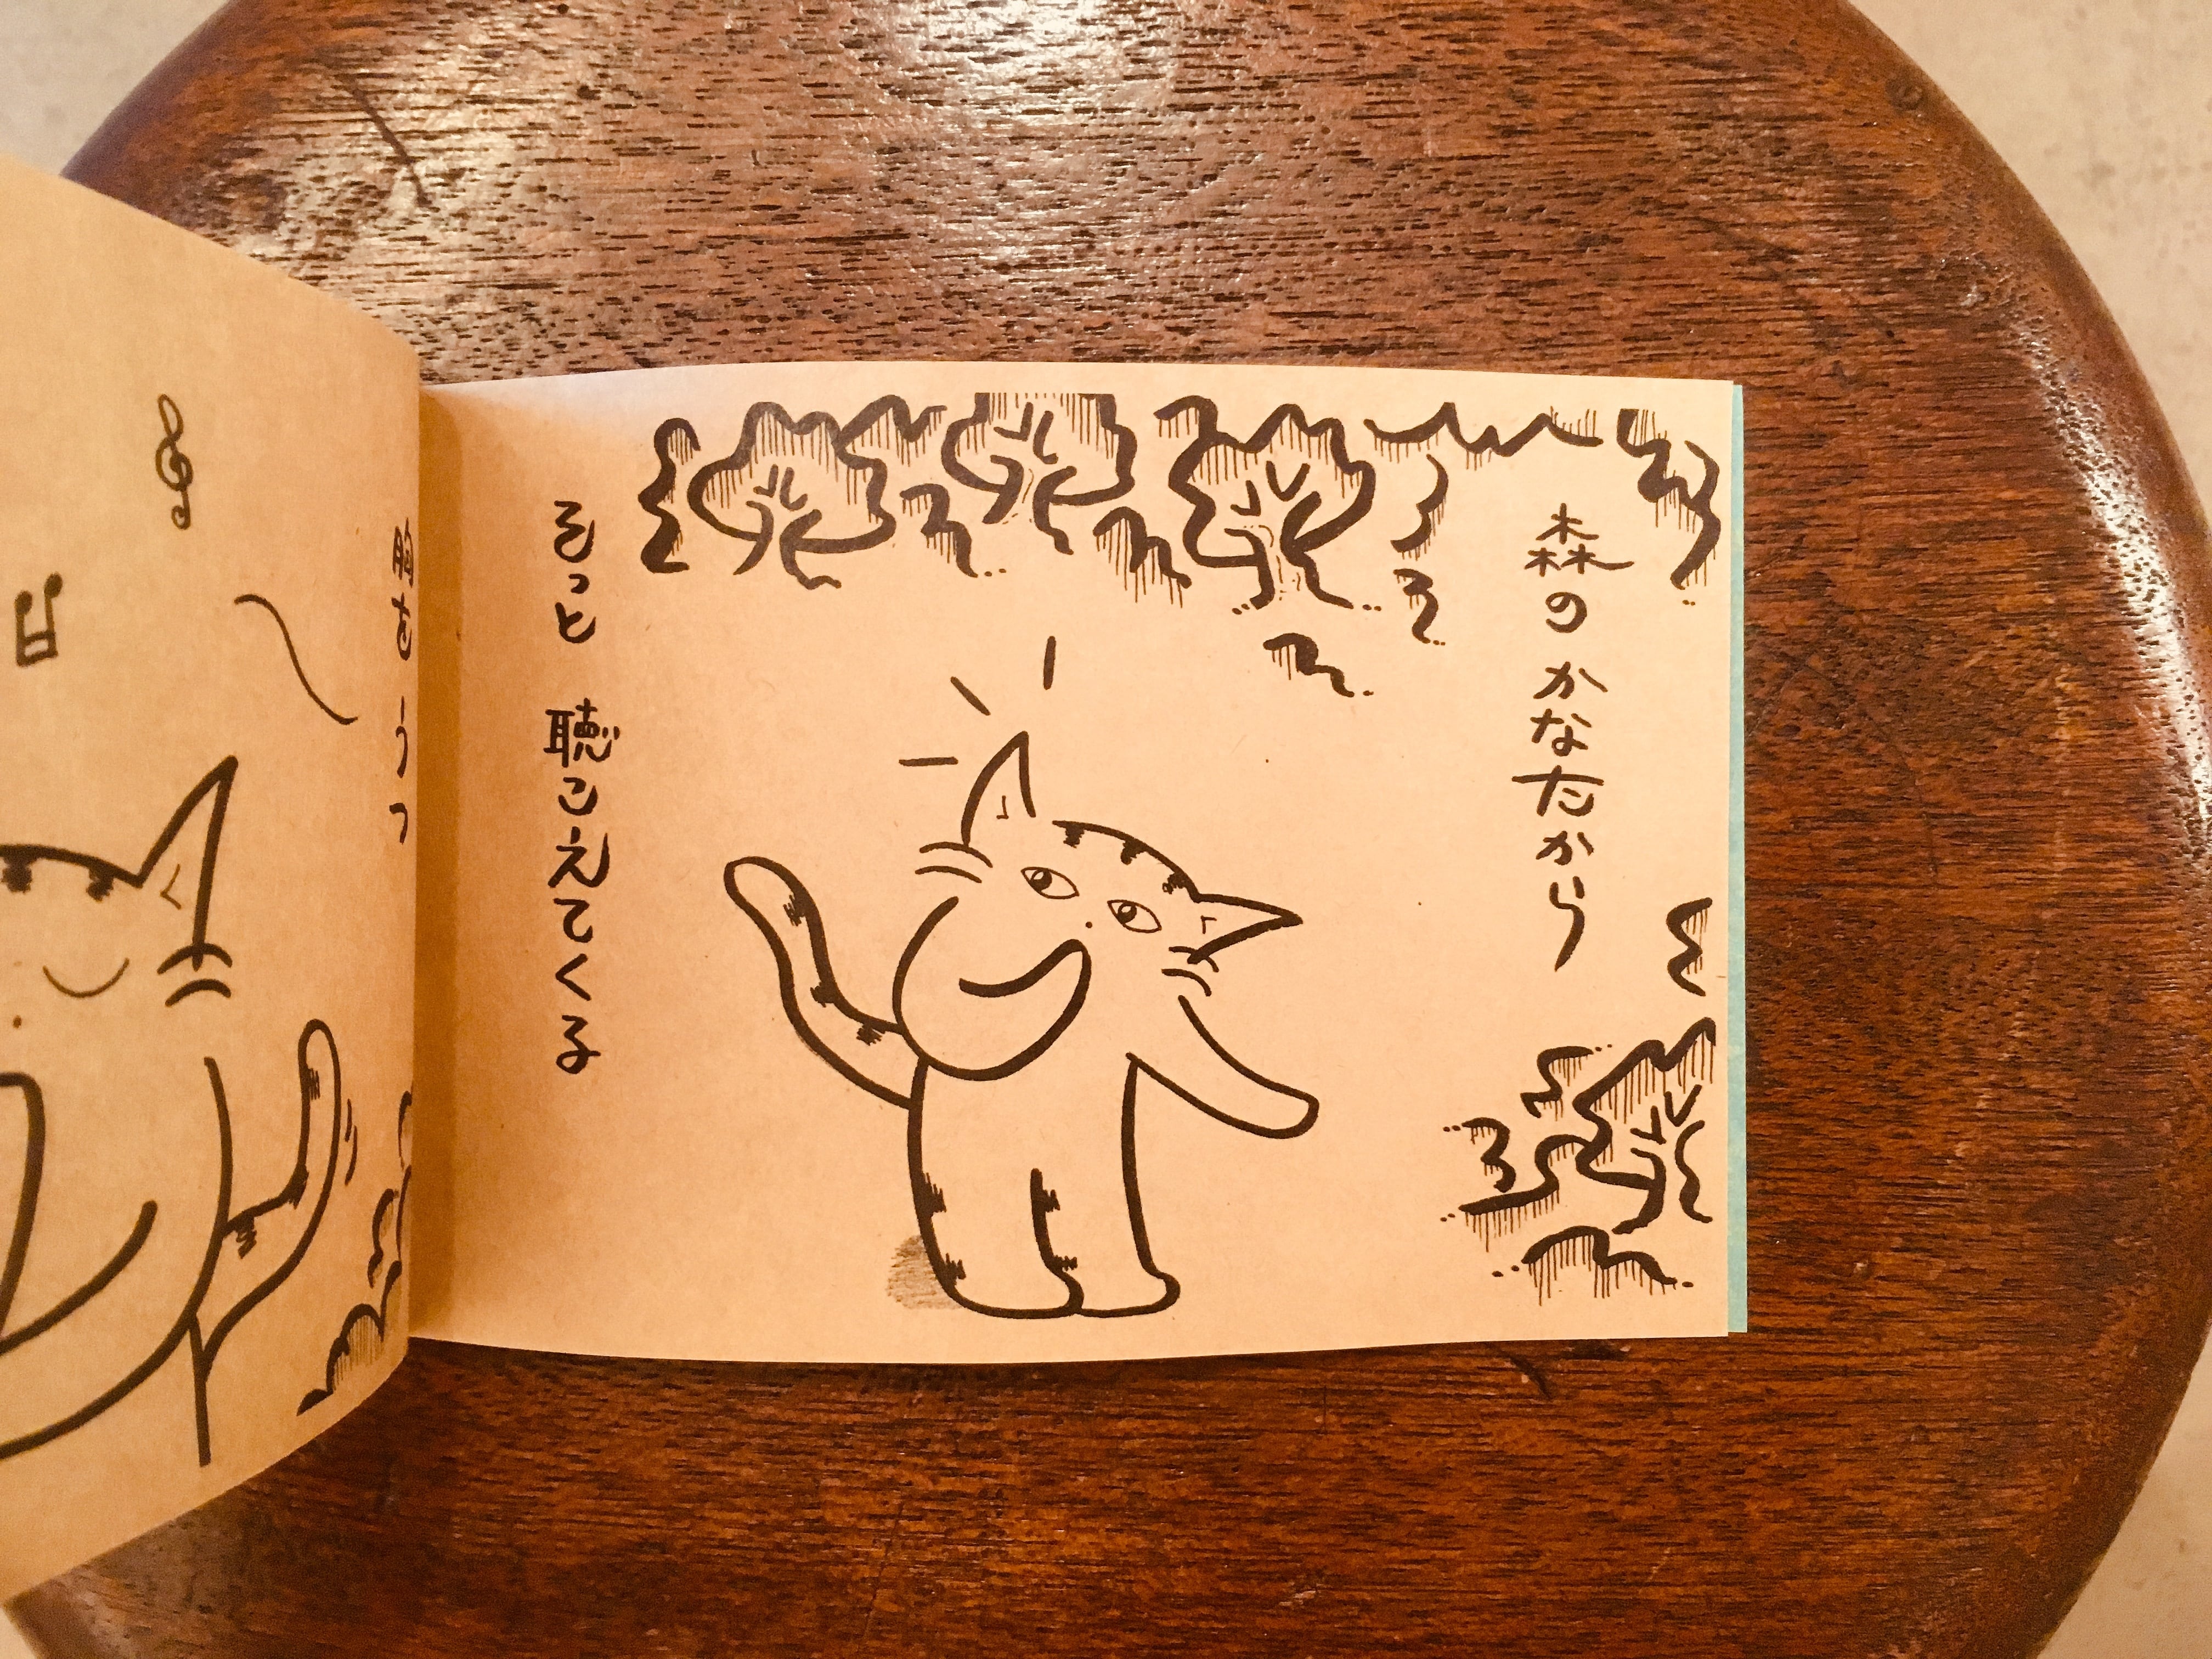 森のかなたから
そっと 聴こえてくる
胸をうつ